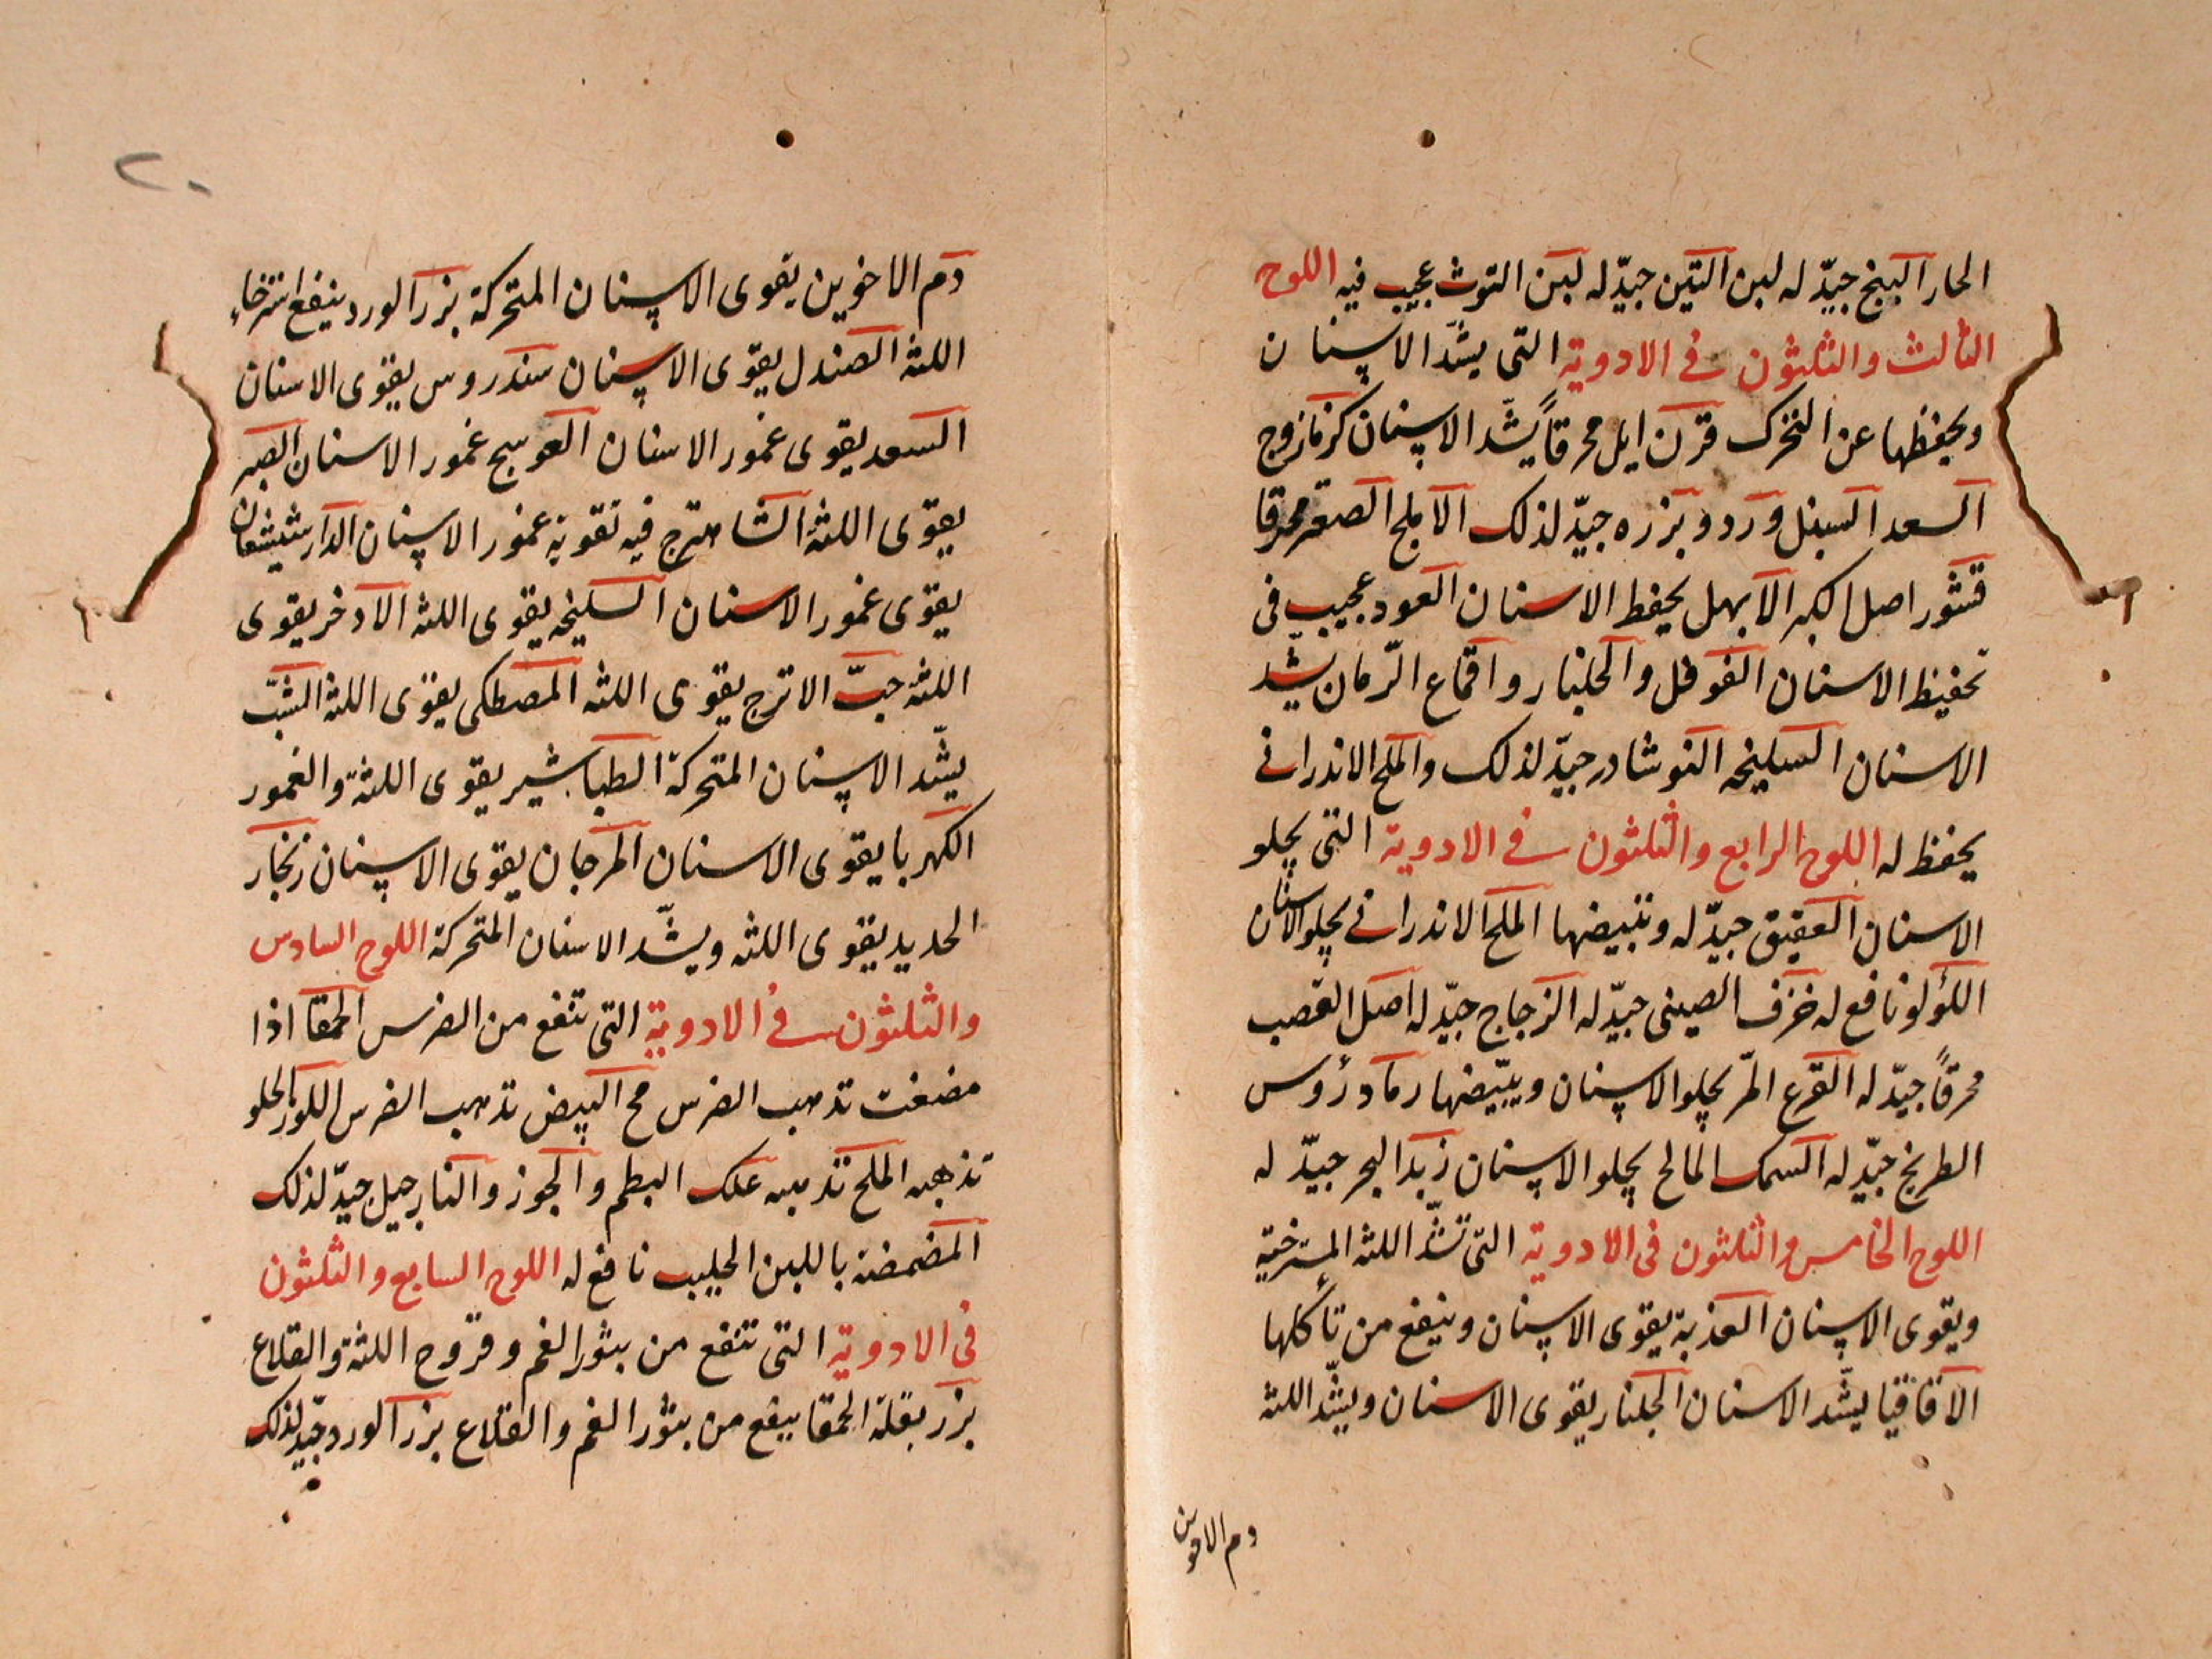 الحار البنج جيّد له لبن التين جيّد له لبن التوث عجيب فيه اللوح
الثالث والثلثون فى الادوية التى يشدّ الاسنان
ويحفظها عن التحرك قرن ايل محرقاً يشدّ الاسنان كزمازوج
السعد السنبل ورد وبزره جيّد لذلك الاملج الصعتر محرقا
قشور اصل الكبر الابهل يحفظ الاسنان العود عجيب فى
تحفيظ الاسنان الفوفل والجلنار واقماع الرّمان يشد
الاسنان السليخه النوشادر جيّد لذلك والملح الاندرانى
يحفظ له اللوح الرابع والثلثون فى الادوية التى يجلو
الاسنان العقيق جيّد له وتبيضها الملح الاندرانى يجلو الاسنان
اللؤلو نافع له خزف الصينى جيّد له الزجاج جيّد له اصل القصب
محرقاً جيّد له القرع المرّ يجلو الاسنان ويبيّضها رماد رؤس
الطريخ جيّد له السمك المالح يجلو الاسنان زبد البحر جيّد له
اللوح الخامس والثلثون فى الادوية التى تشدّ اللثه المسترخية
ويقوى الاسنان العذبة يقوى الاسنان وينفع من تأكلها
الاقاقيا يشّد الاسنان الجلنار يقوى الاسنان ويشّد اللثه
دم الاخوين
٢٠
دم الاخوين يقوى الاسنان المتحركة بزر الورد ينفع استرخاء
اللثه الصندل يقوّى الاسنان سندروس يقوى الاسنان
السعد يقوى غمور الاسنان العوسج غمور الاسنان الصبر
يقوّى اللثه الشاهترج فيه تقوية غمور الاسنان الدارشيشعان
يقوّى غمور الاسنان السليخه يقوى اللثه الادخر يقوى
اللثه حبّ الاترج يقوى اللثه المصطكى يقوى اللثه الشبّ
يشّد الاسنان المتحركة الطباشير يقوى اللثة والغمور
الكهربا يقوى الاسنان المرجان يقوى الاسنان زنجار
الحديد يقوى اللثه ويشّد الاسنان المتحركة اللوح السادس
والثلثون فى الادوية التى تنفع من الضرس الحمقا اذا
مضغت تذهب الضرس مح البيض تذهب الضرس اللوز الحلو
تذهبه الملح تذهبه علك البطم والجوز والنارجيل جيّد لذلك
المضمضة باللبن الحليب نافع له اللوح السابع والثلثون
فى الادوية التى تنفع من بثور الفم وقروح اللثة والقلاع
بزر بقلة الحمقا ينفع من بثور الفم والقلاع بزر الورد جيّد لذلك